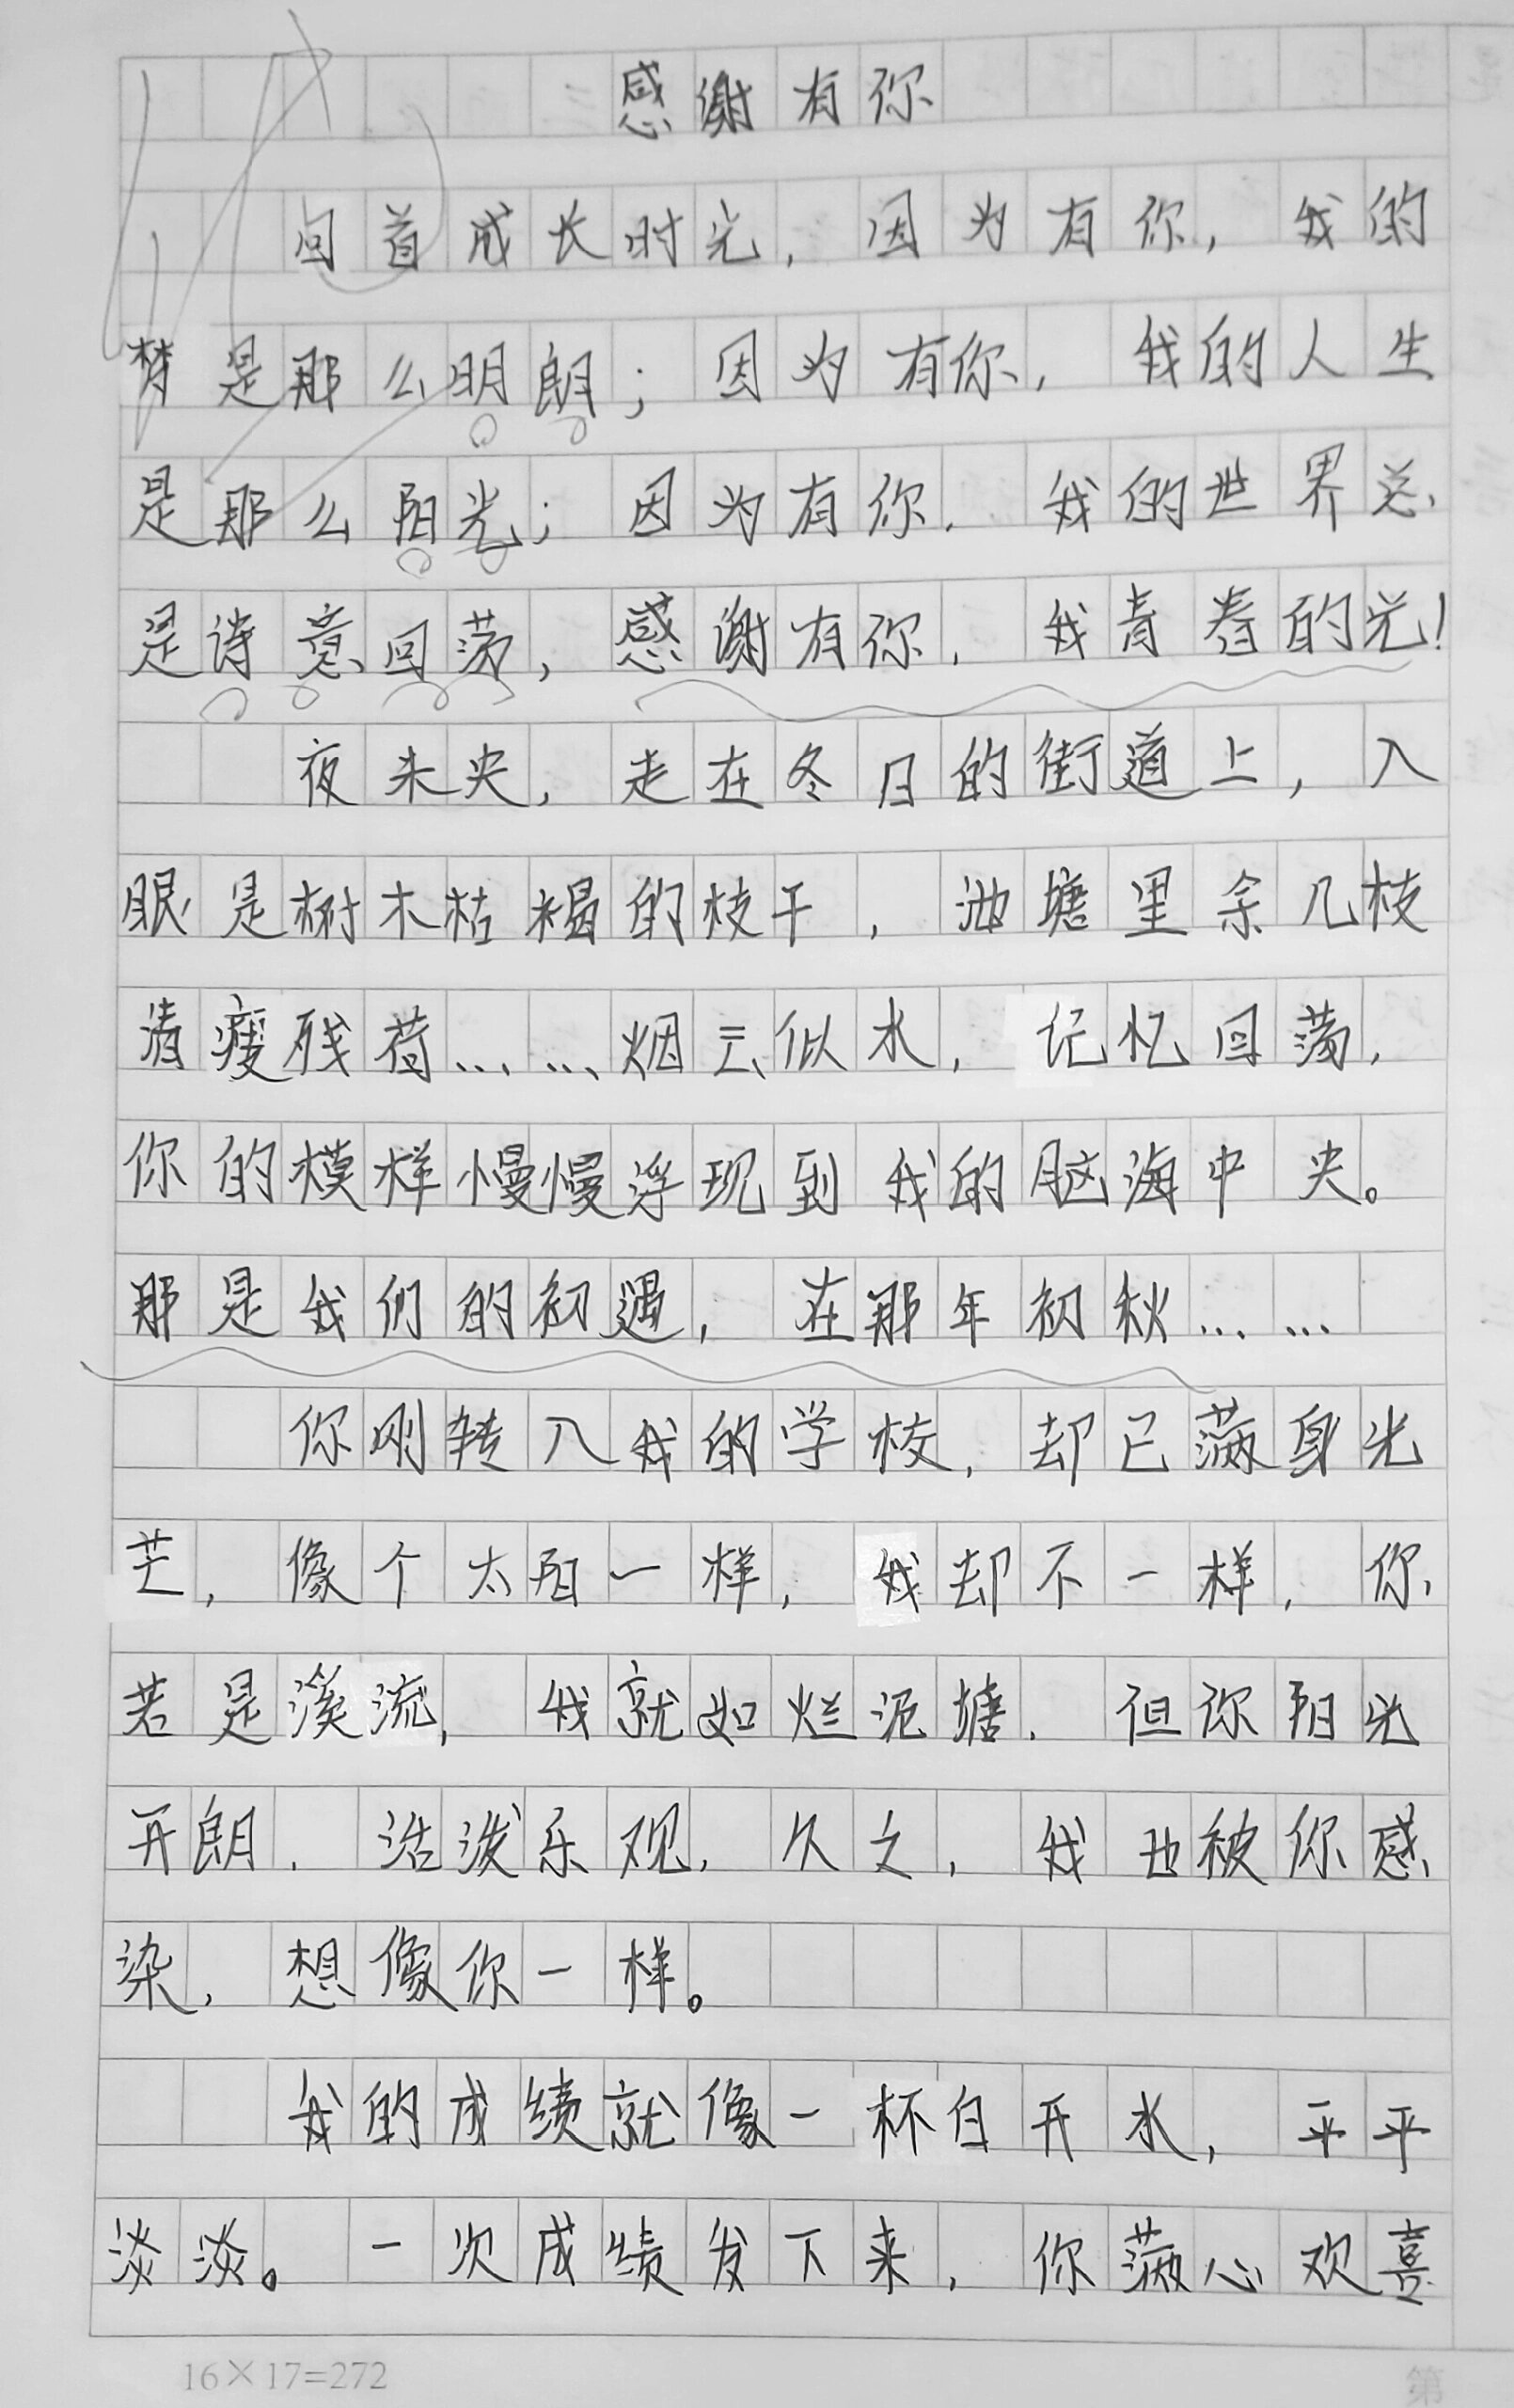 感谢有你
回首成长时光，因为有你，我的
梦是那么明朗；因为有你，我的人生
是那么阳光；因为有你，我的世界总
是诗意回荡，感谢有你，我青春的光！
夜未央，走在冬日的街道上，入
眼是树木枯褐的枝干，池塘里余几枝
清瘦残荷……烟云似水，记忆回荡，
你的模样慢慢浮现到我的脑海中央。
那是我们的初遇，在那年初秋……
你刚转入我的学校，却已满身光
芒，像个太阳一样，我却不一样，你
若是溪流，我就如烂泥塘，但你阳光
开朗，活泼乐观，久之，我也被你感
染，想像你一样。
我的成绩就像一杯白开水，平平
淡淡。一次成绩发下来，你满心欢喜
16×17=272
第